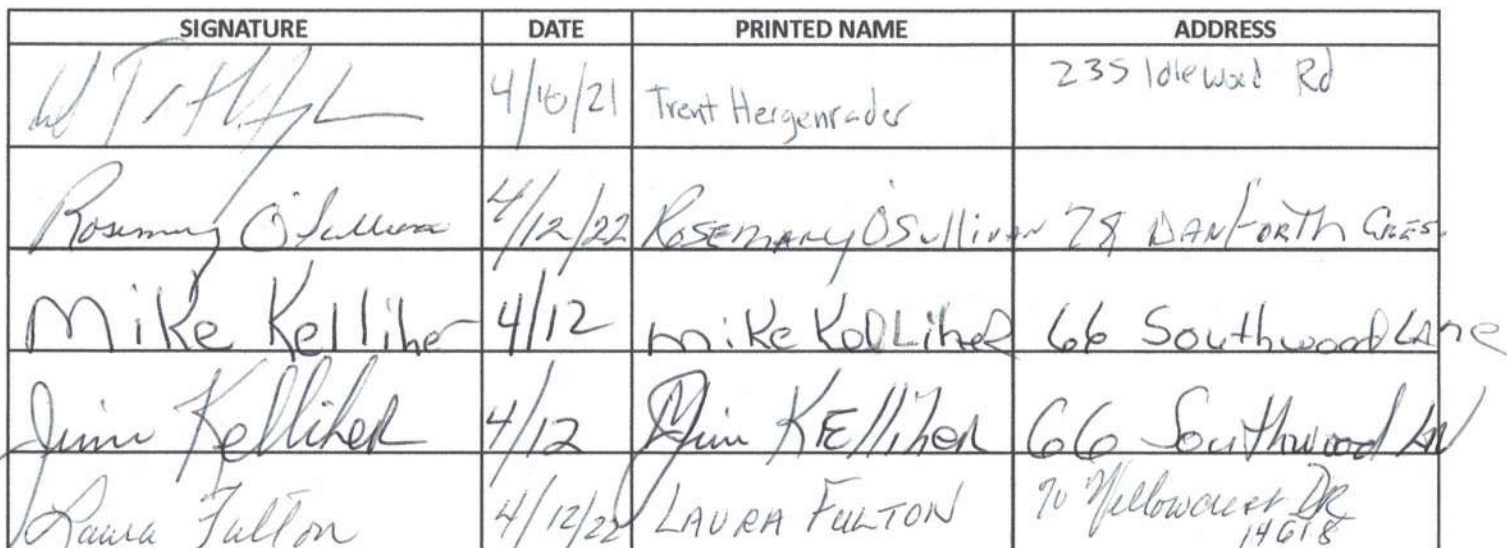 SIGNATURE DATE PRINTED NAME ADDRESS
4/10/21 Trent Hergenrader 235 Idlewood Rd
Rosemary O'Sullivan 4/12/22 ROSEMARY O'Sullivan 78 DANFORTH CRES.
Mike Kelliher 4/12 mike KelLiheR 66 Southwood LANe
Jim Kelliher 4/12 Jim KElliher 66 Southwood LN
Laura Fulton 4/12/22 LAURA FULTON 70 Yellowcrest DR
14618